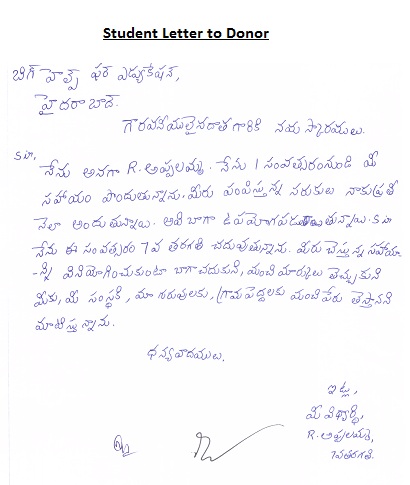 Student Letter to Donor
బిగ్ హెల్ప్ ఫర్ ఎడ్యుకేషన్,
హైదరాబాద్.
గౌరవనీయులైనదాత గారికి నమస్కారములు.
Sir,
నేను అనగా R. అప్పలమ్మ. నేను 1 సంవత్సరంనుండి మీ
సహాయం పొందుతున్నాను. మీరు పంపిస్తున్న సరుకులు నాకుప్రతి
నెలా అందుతున్నాయి. అవి బాగా ఉపయోగపడుతున్నాయి. Sir
నేను ఈ సంవత్సరం 7వ తరగతి చదువుతున్నాను. మీరు చేస్తున్న సహాయా
-న్ని వినియోగించుకుంటా బాగాచదుకుని, మంచి మార్కులు తెచ్చుకుని
మీకు, మీ సంస్థకి, మా గురువులకు, గ్రామపెద్దలకు మంచిపేరు తెస్తానని
మాటిస్తున్నాను.
ధన్యవాదములు.
ఇట్లు,
మీ విధ్యార్థి,
R. అప్పలమ్మ,
7వతరగతి.